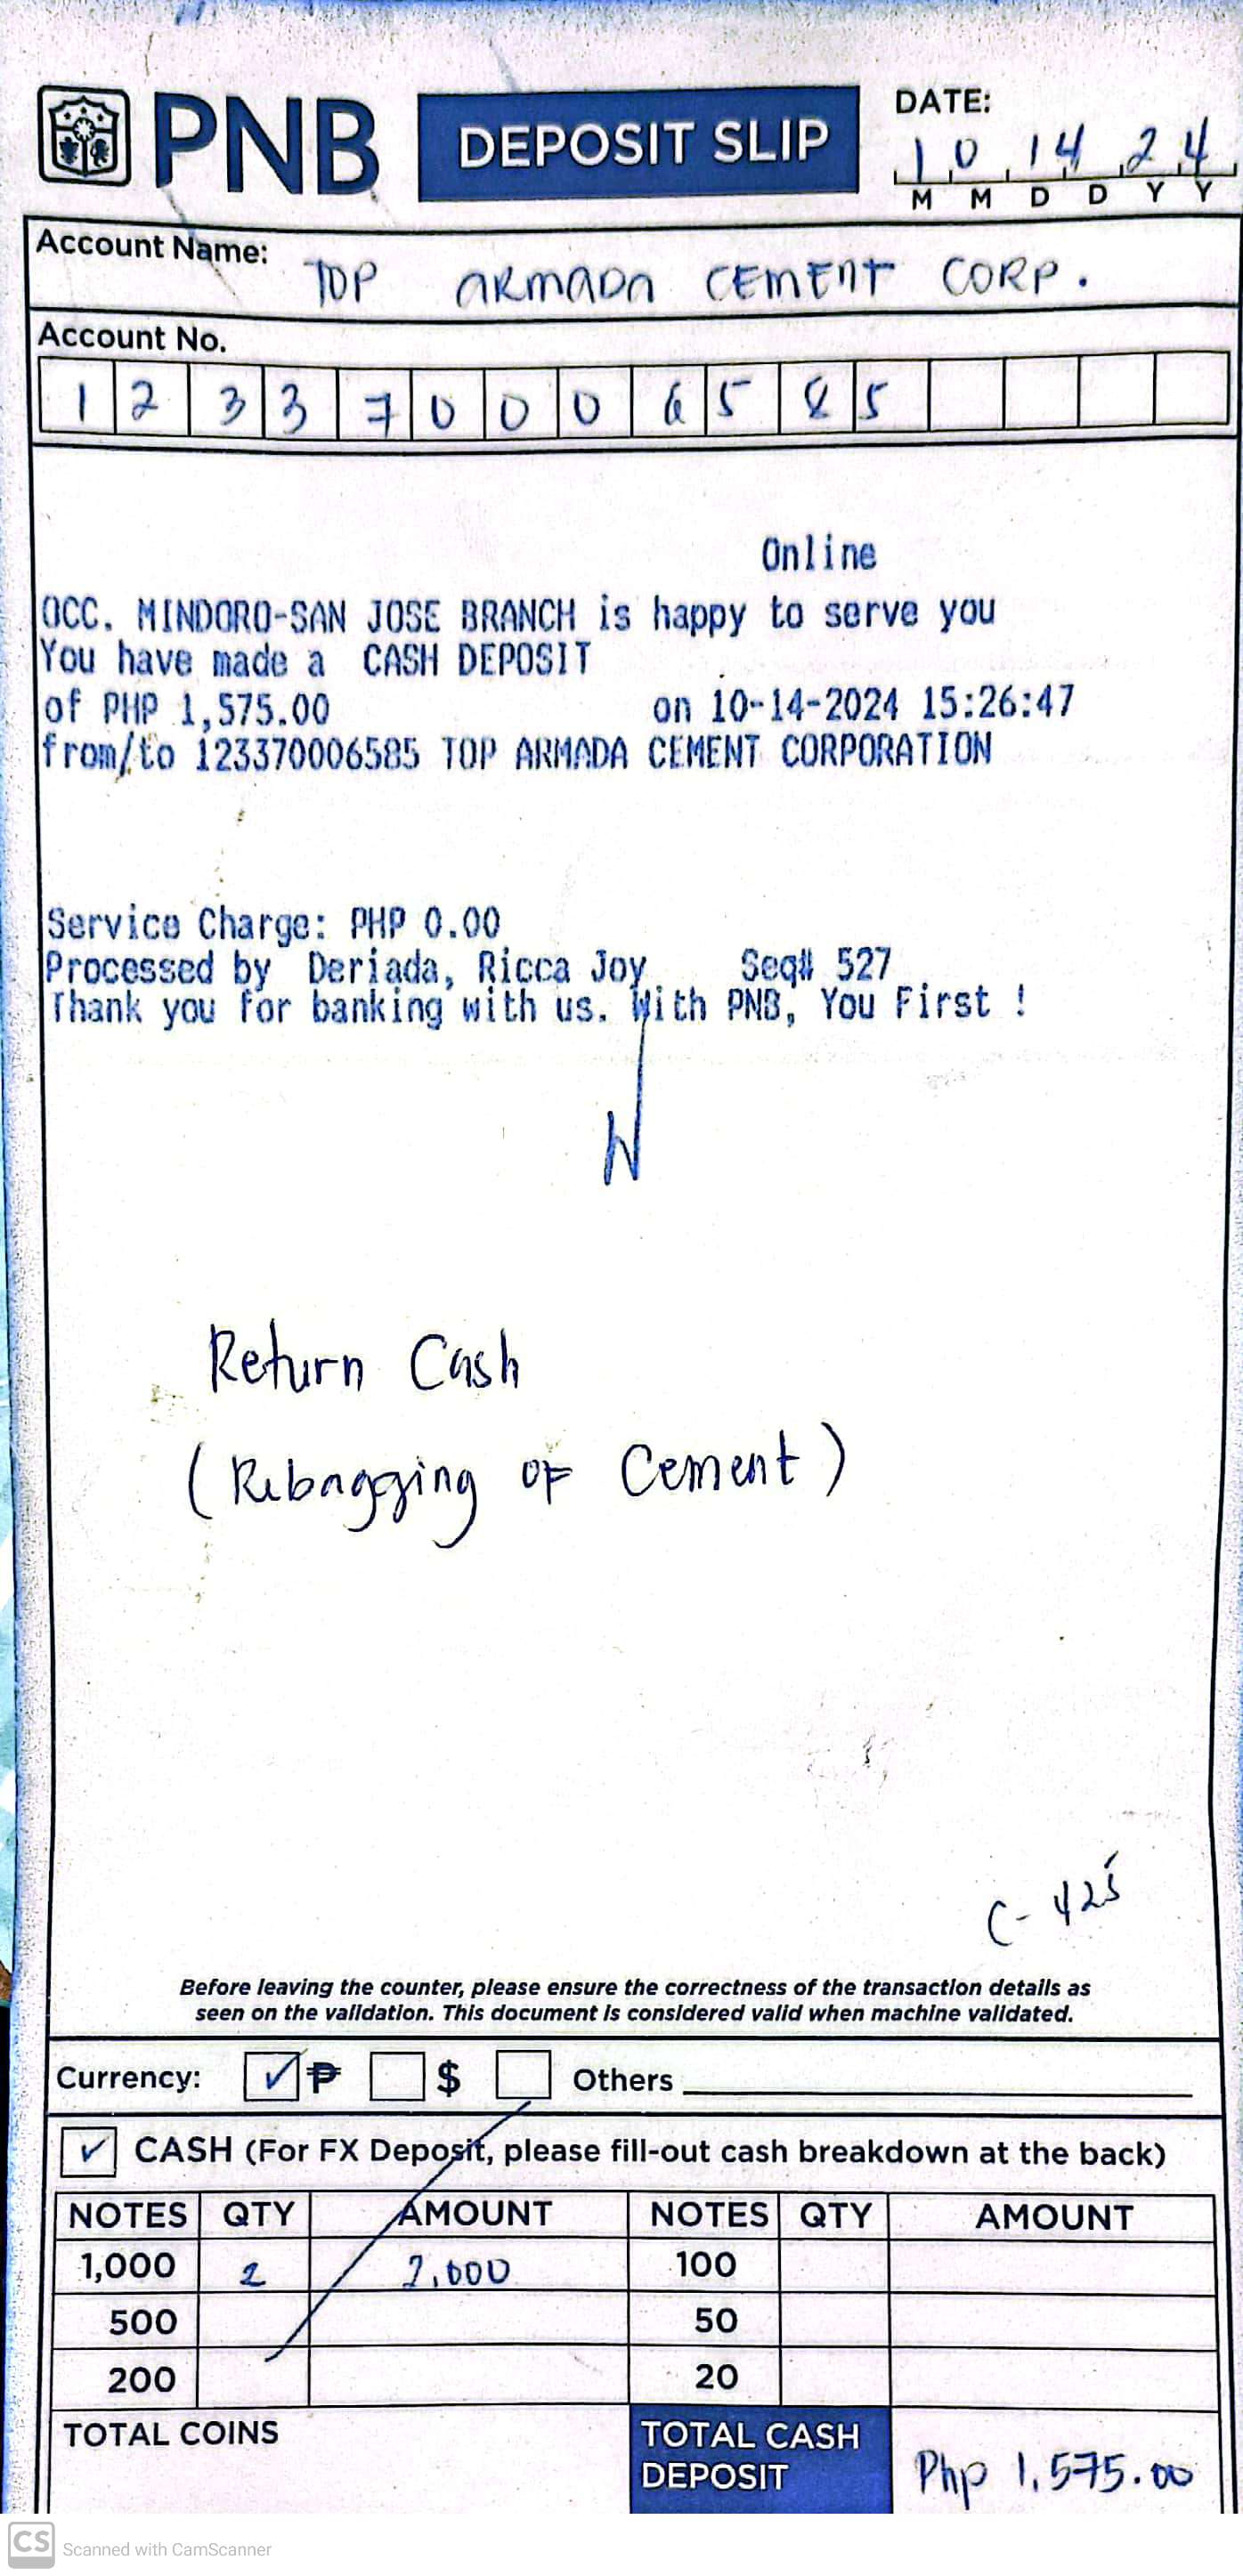 PNB DEPOSIT SLIP
DATE:
10 14 24
M M D D Y Y
Account Name: TOP ARMADA CEMENT CORP.
Account No.
1 2 3 3 7 0 0 0 6 5 8 5
Online
OCC. MINDORO-SAN JOSE BRANCH is happy to serve you
You have made a CASH DEPOSIT
of PHP 1,575.00 on 10-14-2024 15:26:47
from/to 123370006585 TOP ARMADA CEMENT CORPORATION
Service Charge: PHP 0.00
Processed by Deriada, Ricca Joy Seq# 527
Thank you for banking with us. With PNB, You First !
Return Cash
(Rebagging of Cement)
C- 425
Before leaving the counter, please ensure the correctness of the transaction details as
seen on the validation. This document is considered valid when machine validated.
Currency: ✓ ₱ $ Others
✓ CASH (For FX Deposit, please fill-out cash breakdown at the back)
NOTES QTY AMOUNT NOTES QTY AMOUNT
1,000 2 2,000 100
500 50
200 20
TOTAL COINS TOTAL CASH DEPOSIT Php 1,575.00
CS Scanned with CamScanner